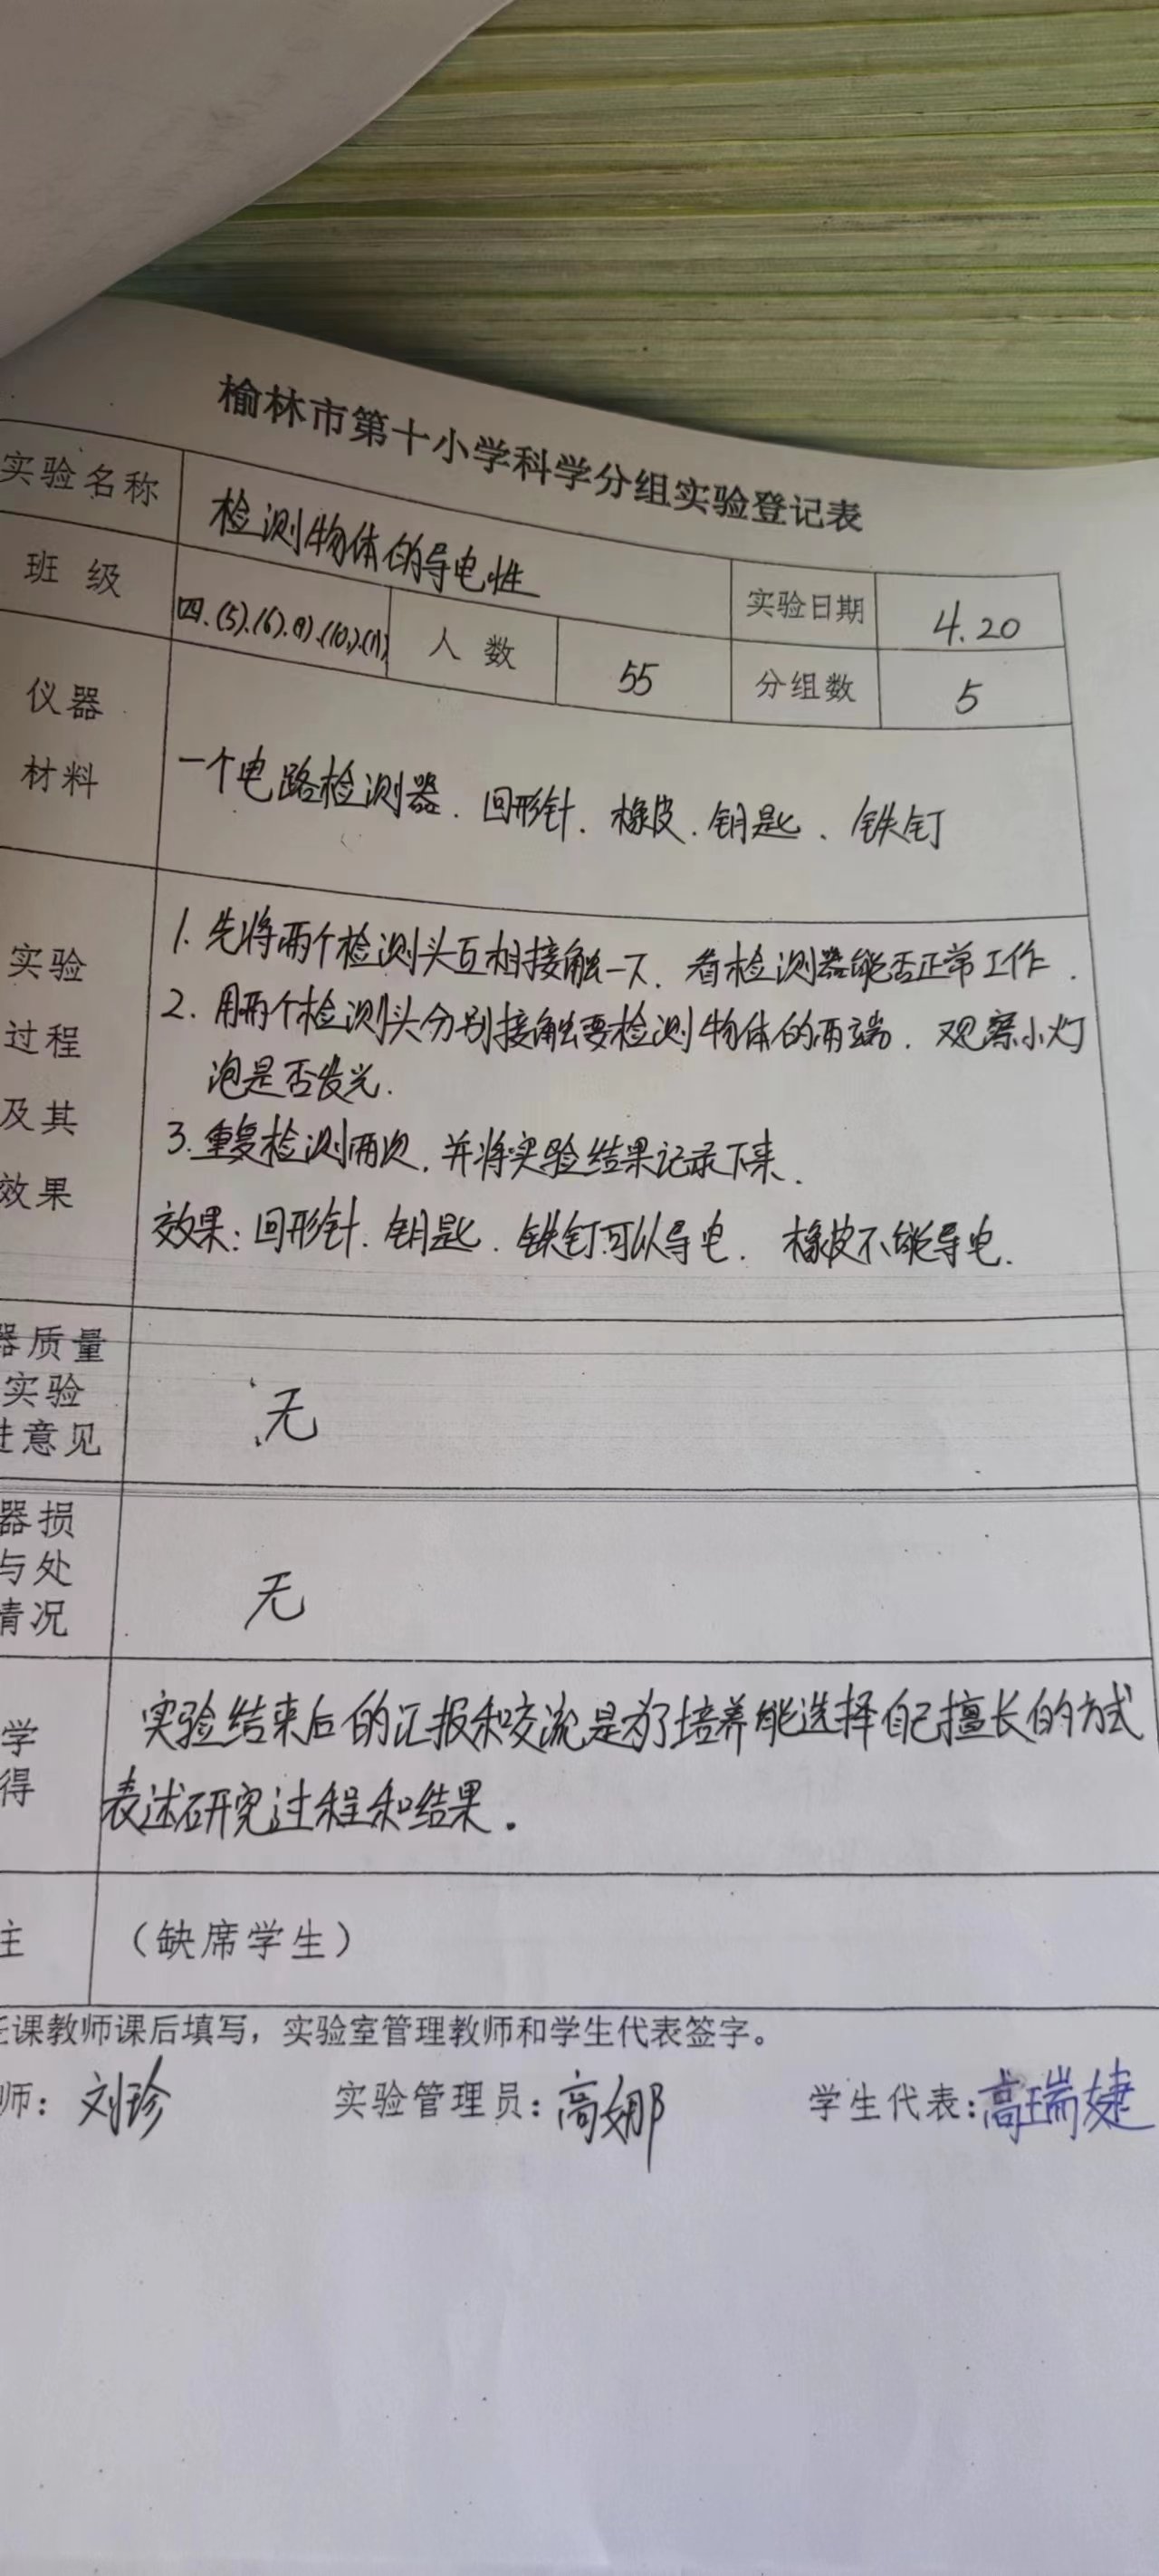 榆林市第十小学科学分组实验登记表
实验名称 检测物体的导电性 实验日期 4.20
班 级 四.(5).(6).(9).(10).(11) 人 数 55 分组数 5
仪器
材料
一个电路检测器. 回形针. 橡皮. 钥匙. 铁钉
实验
过程
及其
效果
1. 先将两个检测头互相接触一下. 看检测器能否正常工作.
2. 用两个检测头分别接触要检测物体的两端. 观察小灯
泡是否发光.
3. 重复检测两次. 并将实验结果记录下来.
效果: 回形针. 钥匙. 铁钉可以导电. 橡皮不能导电.
器质量
实验
进意见
无
器损
与处
情况
无
学
得
实验结束后的汇报和交流是为了培养能选择自己擅长的方式
表述研究过程和结果.
主 （缺席学生）
任课教师课后填写，实验室管理教师和学生代表签字。
师: 刘珍 实验管理员: 高娜 学生代表: 高瑞婕